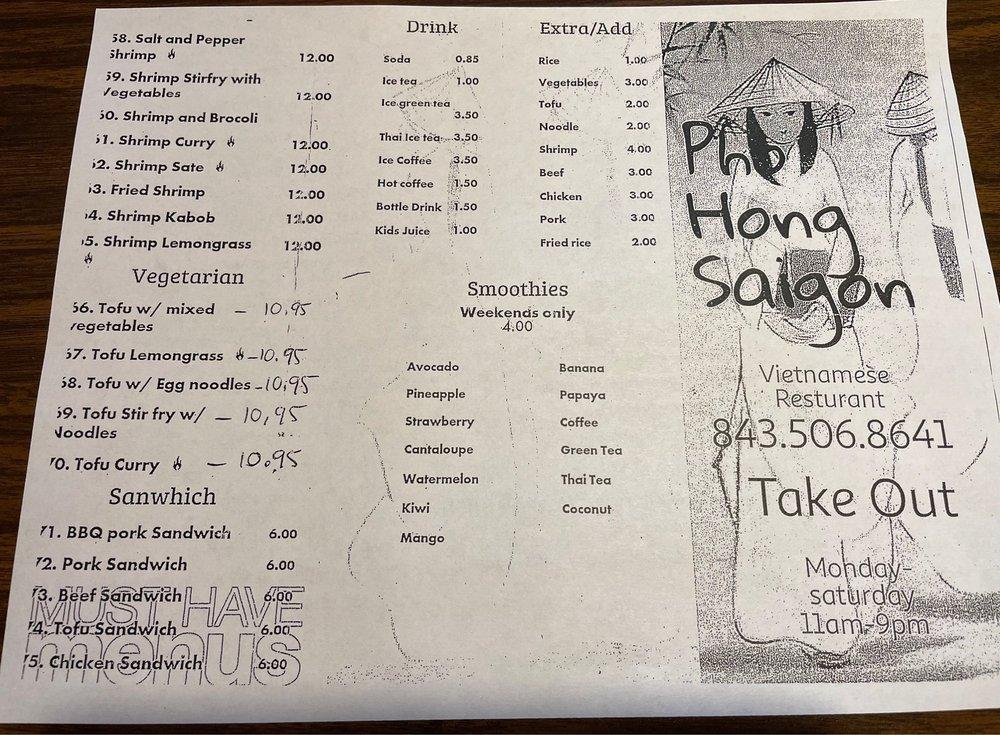 58. Salt and Pepper
Shrimp 12.00
59. Shrimp Stirfry with
Vegetables 12.00
60. Shrimp and Brocoli
61. Shrimp Curry 12.00
62. Shrimp Sate 12.00
63. Fried Shrimp 12.00
64. Shrimp Kabob 12.00
65. Shrimp Lemongrass 12.00
Vegetarian
66. Tofu w/ mixed — 10.95
vegetables
67. Tofu Lemongrass – 10.95
68. Tofu w/ Egg noodles – 10,95
69. Tofu Stir fry w/ — 10,95
Noodles
70. Tofu Curry — 10.95
Sanwhich
71. BBQ pork Sandwich 6.00
72. Pork Sandwich 6.00
73. Beef Sandwich 6.00
74. Tofu Sandwich 6.00
75. Chicken Sandwich 6.00
MUST HAVE
menus
Drink
Soda 0.85
Ice tea 1.00
Ice green tea
3.50
Thai Ice tea 3.50
Ice Coffee 3.50
Hot coffee 1.50
Bottle Drink 1.50
Kids Juice 1.00
Extra/Add
Rice 1.00
Vegetables 3.00
Tofu 2.00
Noodle 2.00
Shrimp 4.00
Beef 3.00
Chicken 3.00
Pork 3.00
Fried rice 2.00
Smoothies
Weekends only
4.00
Avocado
Pineapple
Strawberry
Cantaloupe
Watermelon
Kiwi
Mango
Banana
Papaya
Coffee
Green Tea
Thai Tea
Coconut
Pho
Hong
Saigon
Vietnamese
Resturant
843.506.8641
Take Out
Monday-
saturday
11am-9pm